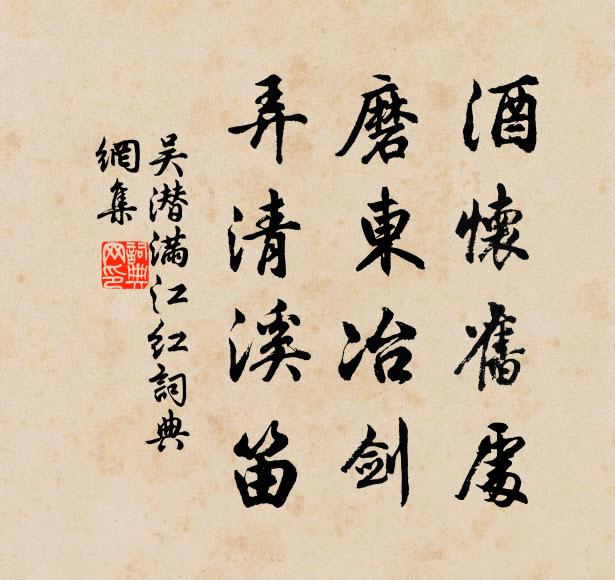 酒懷舊處
磨東冶劍
弄清溪笛
吴潜滿江红詞典
網集
詞典
网印